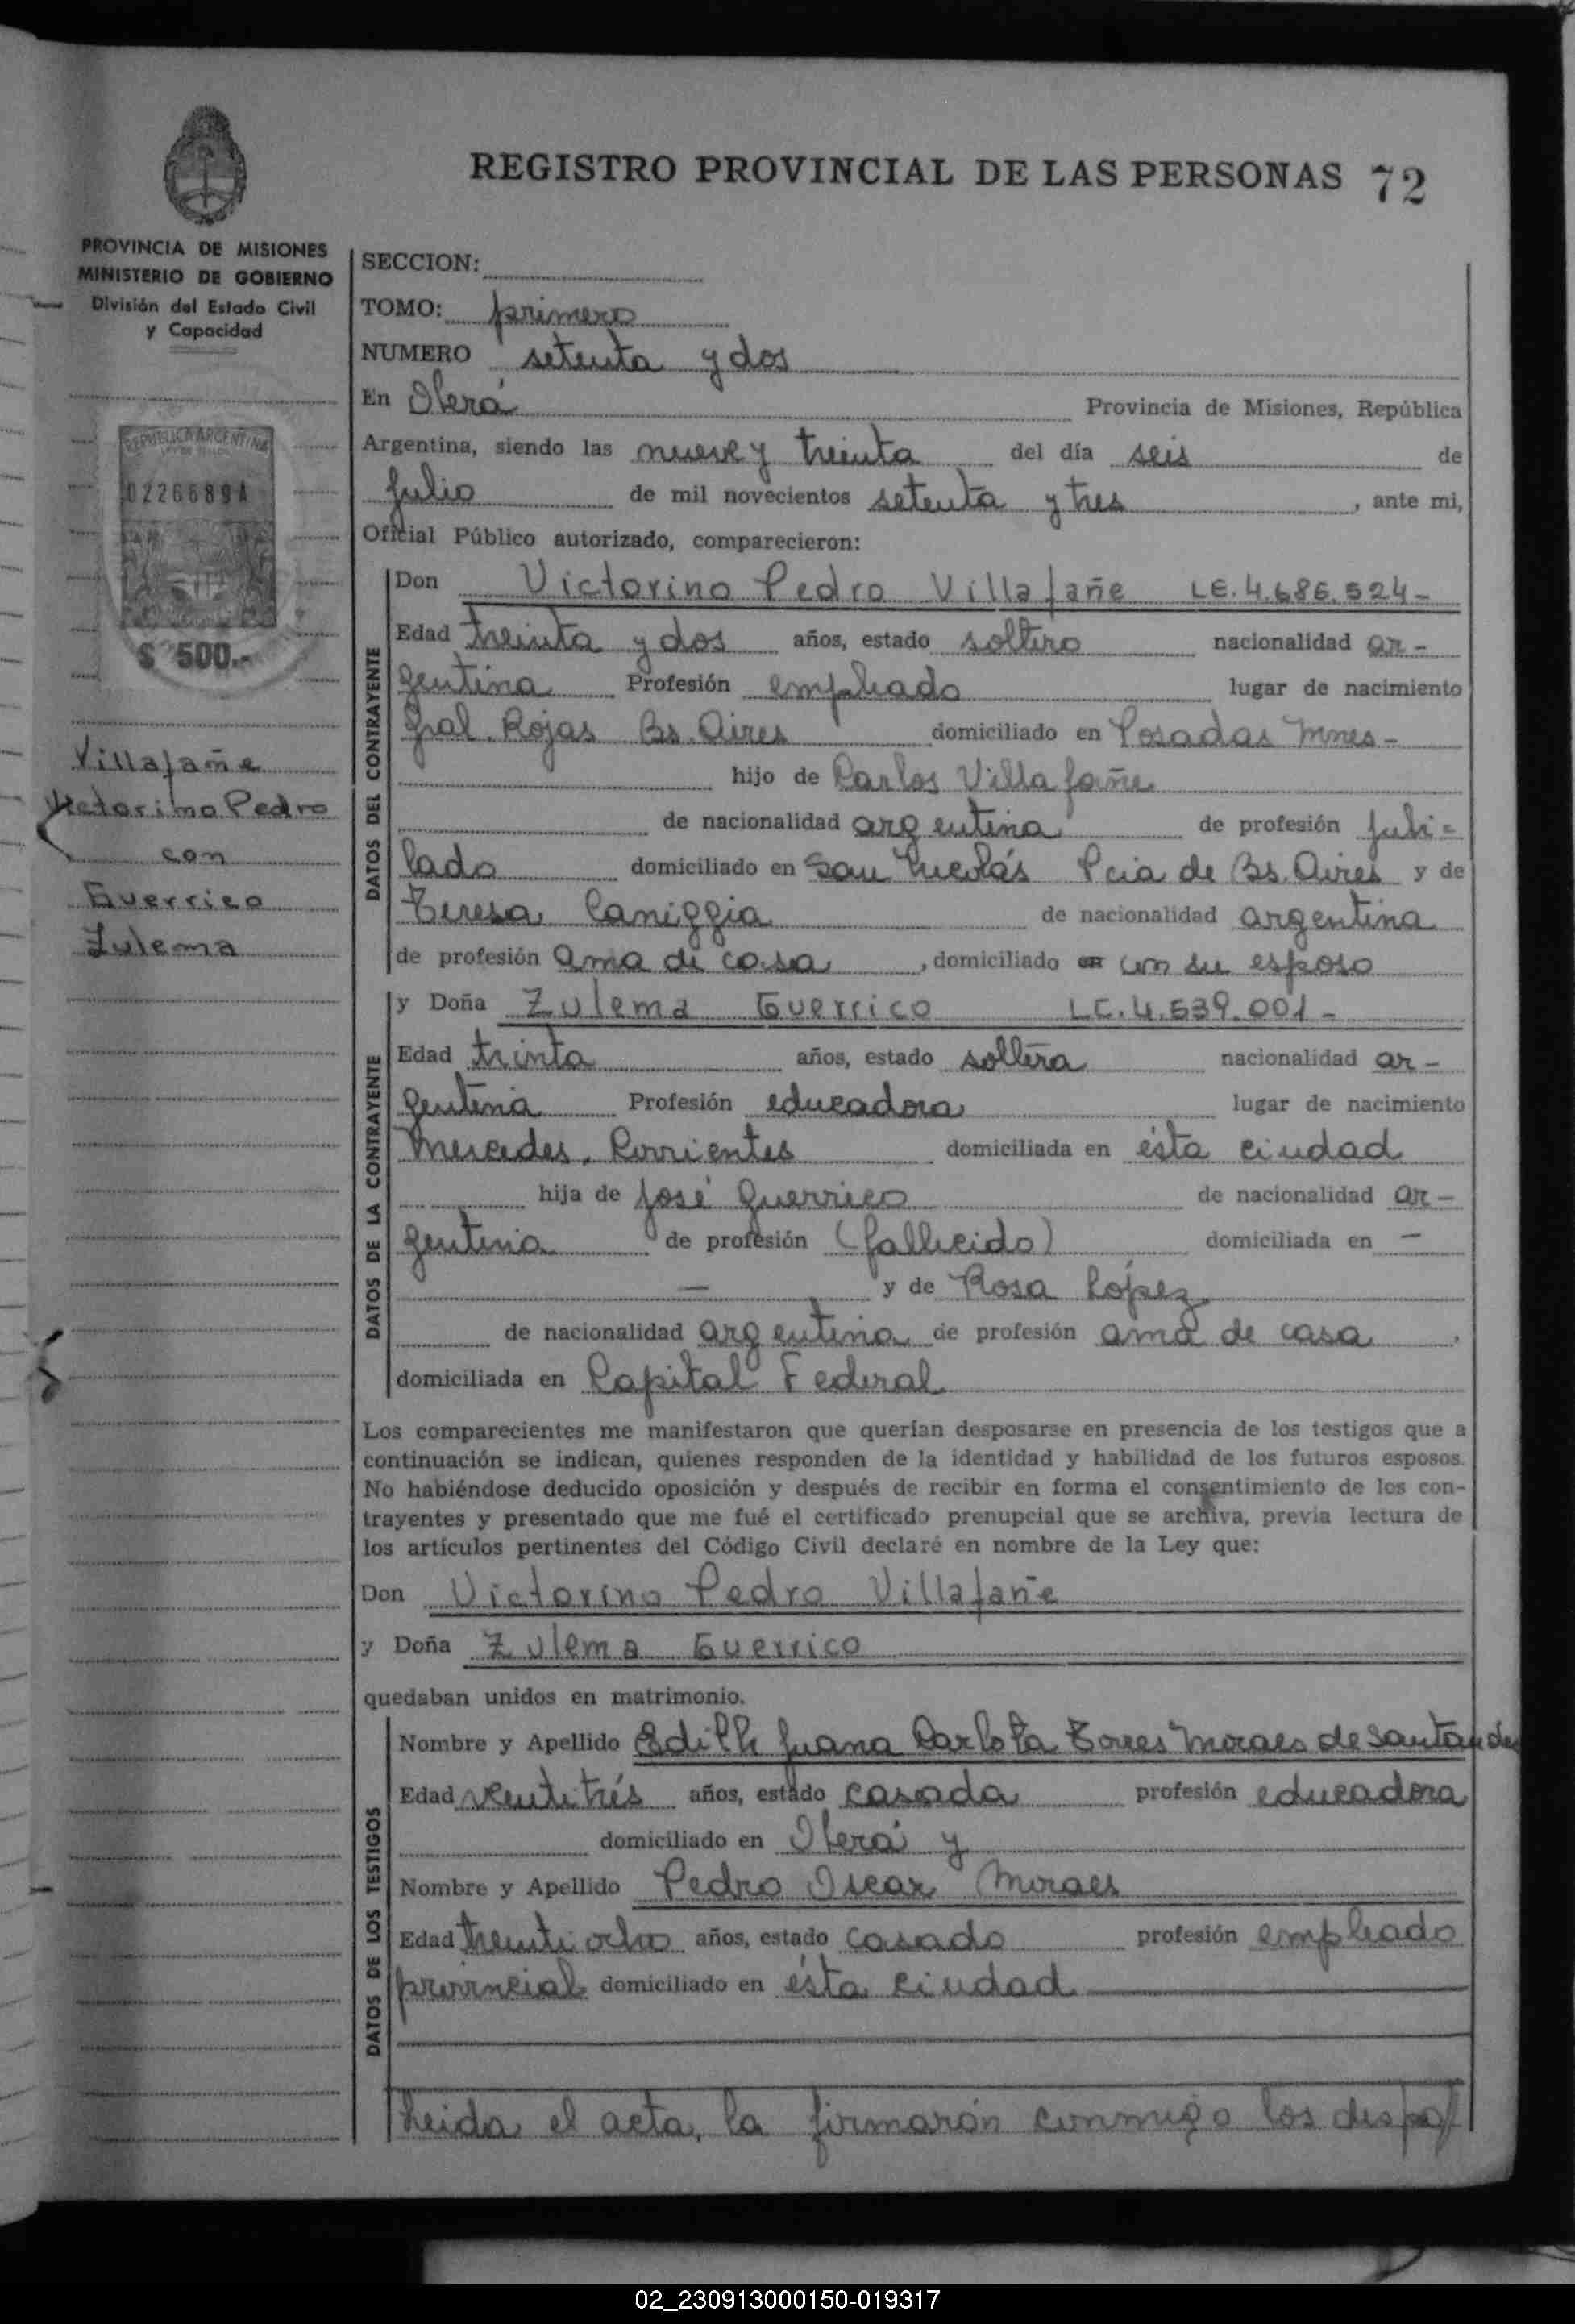 REGISTRO PROVINCIAL DE LAS PERSONAS 72
PROVINCIA DE MISIONES
MINISTERIO DE GOBIERNO
División del Estado Civil
y Capacidad
REPUBLICA ARGENTINA
0226689A
$ 500.-
Villafañe
Victorino Pedro
con
Guerrico
Zulema
SECCION:
TOMO: primero
NUMERO setenta y dos
En Oberá Provincia de Misiones, República
Argentina, siendo las nueve y treinta del día seis de
julio de mil novecientos setenta y tres, ante mi,
Oficial Público autorizado, comparecieron:
DATOS DEL CONTRAYENTE
Don Victorino Pedro Villafañe LE.4.686.524-
Edad treinta y dos años, estado soltero nacionalidad ar-
gentina Profesión empleado lugar de nacimiento
Gral. Rojas Bs. Aires domiciliado en Posadas Mnes-
hijo de Carlos Villafañe
de nacionalidad argentina de profesión jubi-
lado domiciliado en San Nicolás Pcia de Bs. Aires y de
Teresa Caniggia de nacionalidad argentina
de profesión ama de casa, domiciliado en con su esposo
DATOS DE LA CONTRAYENTE
y Doña Zulema Guerrico LC.4.539.001-
Edad trinta años, estado soltera nacionalidad ar-
gentina Profesión educadora lugar de nacimiento
Mercedes, Corrientes domiciliada en ésta ciudad
hija de José Guerrico de nacionalidad ar-
gentina de profesión (fallecido) domiciliada en -
- y de Rosa López
de nacionalidad argentina de profesión ama de casa,
domiciliada en Capital Federal
Los comparecientes me manifestaron que querían desposarse en presencia de los testigos que a
continuación se indican, quienes responden de la identidad y habilidad de los futuros esposos.
No habiéndose deducido oposición y después de recibir en forma el consentimiento de los con-
trayentes y presentado que me fué el certificado prenupcial que se archiva, previa lectura de
los artículos pertinentes del Código Civil declaré en nombre de la Ley que:
Don Victorino Pedro Villafañe
y Doña Zulema Guerrico
quedaban unidos en matrimonio.
DATOS DE LOS TESTIGOS
Nombre y Apellido Edith Juana Carlota Torres Moraes de Santander
Edad ventitrés años, estado casada profesión educadora
domiciliado en Oberá y
Nombre y Apellido Pedro Oscar Moraes
Edad trentiocho años, estado casado profesión empleado
provincial domiciliado en ésta ciudad
Leida el acta, la firmarón conmigo los
02_230913000150-019317